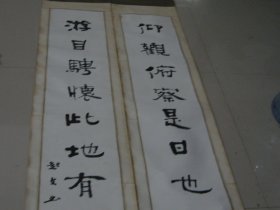 仰觀俯察是日也
游目騁懷此地有